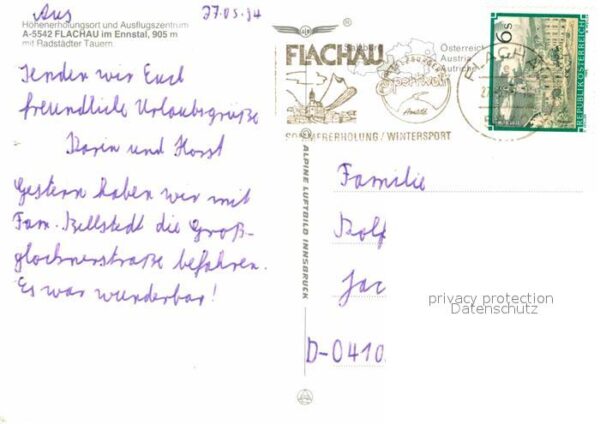 Aus 27.05.94
Höhenerholungsort und Ausflugszentrum
A-5542 FLACHAU im Ennstal, 905 m
mit Radstädter Tauern.
senden wir Euch
freundliche Urlaubsgrüße
Karin und Horst
Gestern haben wir mit
Fam. Bellstedt die Groß-
glocknerstraße befahren.
Es war wunderbar!
ALPINE LUFTBILD INNSBRUCK
FLACHAU
Österreich
Austria
Autriche
SOMMERERHOLUNG / WINTERSPORT
6s
REPUBLIK ÖSTERREICH
Familie
Rolf
Jac
D-0410
privacy protection
Datenschutz